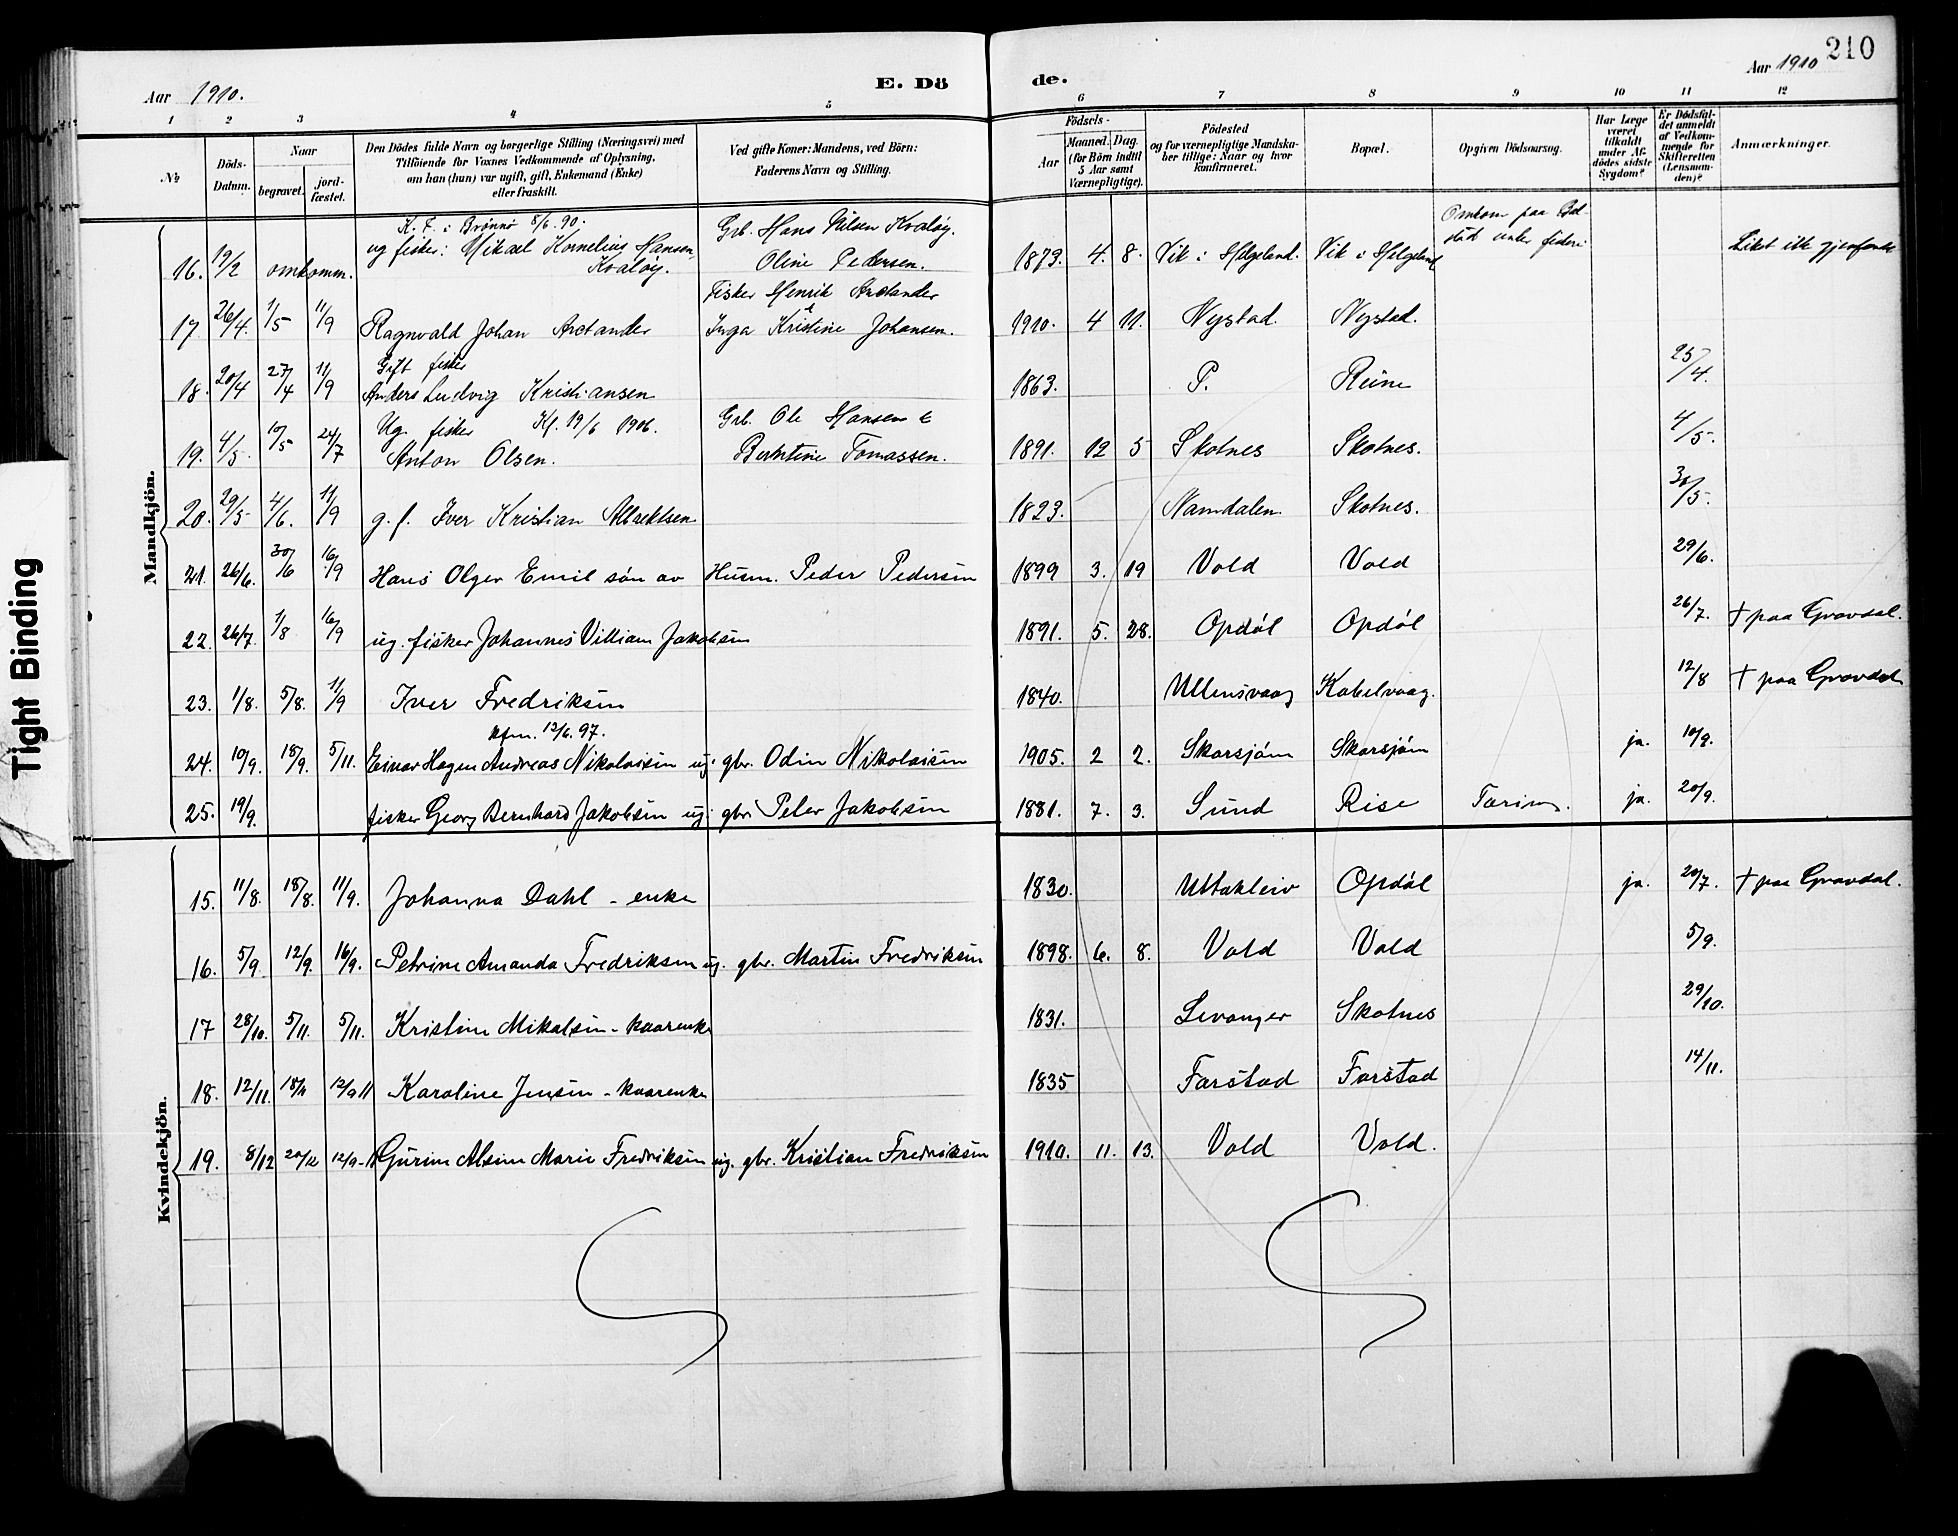 210
Aar 1910.
E. Dö
de.
Aar 1910
1 2 3 4 5 6 7 8 9 10 11 12
№
Döds-Datum.
Naar
begravet.
jord-fæstet.
Den Dödes fulde Navn og borgerlige Stilling (Næringsvei) med
Tilföiende for Voxnes Vedkommende af Oplysning,
om han (hun) var ugift, gift, Enkemand (Enke)
eller fraskilt.
Ved gifte Koner: Mandens, ved Börn:
Faderens Navn og Stilling.
Födsels-
Aar
Maaned. Dag.
(for Börn indtil
5 Aar samt
Værnepligtige).
Födested
og for værnepligtige Mandska-
ber tillige: Naar og hvor
konfirmeret.
Bopæl.
Opgiven Dödsaarsag.
Har Læge
været
tilkaldt
under Af-
dödes sidste
Sygdom?
Er Dödsfal-
det anmeldt
af Vedkom-
mende for
Skifteretten
(Lensman-
den)?
Anmærkninger.
Mandkjön.
K. F. i Brønnø 8/6 90. Grb. Hans Nilsen Kvaløy. Omkom paa
16. 19/2 omkomm. ug fisker: Mikael Kornelius Hansen Kvaløy. Oline Pedersen. 1873. 4. 8. Vik i Helgeland. Vik i Helgeland under Liket ikke
Fisker Henrik Arctander
17. 26/4. 1/5 11/9 Ragnvald Johan Arctander Inga Kristine Johansen. 1910. 4 11. Nystad. Nystad.
Gift fisker
18. 20/4 27/4 11/9 Anders Ludvig Kristiansen 1863. P. Reine 25/4.
Ug. fisker Kf. 19/6 1906. Grb. Ole Hansen &
19. 4/5. 10/5 24/7 Anton Olsen. Berntine Tomassen. 1891. 12 5 Skotnes Skotnes. 4/5.
20. 29/5 4/6. 11/9 g. f. Iver Kristian Albrektsen 1823. Namdalen. Skotnes. 30/5.
21. 26/6. 30/6 16/9 Hans Olger Emil søn av Husm. Peder Pedersen 1899 3. 19 Vold Vold 29/6.
22. 26/7. 1/8 16/9 ug. fisker Johannes Villiam Jakobsen 1891. 5. 28. Opdøl Opdøl 26/7. † paa Gravdal.
23. 1/8. 5/8. 11/9 Iver Fredriksen 1840. Ullensvaag Kabelvaag. 12/8 † paa Gravdal
kfm. 12/6. 97.
24. 10/9. 18/9. 5/11. Einar Hagen Andreas Nikolaisen ug. gbr. Odin Nikolaisen 1905. 2 2. Skarsjøen Skarsjøen ja. 10/9.
25. 19/9. fisker Georg Bernhard Jakobsen ug. gbr. Peter Jakobsen 1881. 7. 3. Sund Rise Taring. ja. 20/9.
Kvindekjön.
15. 11/8. 18/8. 11/9. Johanna Dahl - enke 1830. Uttakleiv Opdøl ja. 20/7. † paa Gravdal.
16. 5/9. 12/9. 16/9. Petrine Amanda Fredriksen ug. gbr. Martin Fredriksen 1898. 6. 8. Vold Vold 5/9.
17 28/10. 5/11. 5/11. Kristine Mikalsen - kaarenke 1831. Levanger Skotnes 29/10.
18. 12/11. 18/11 12/9 11 Karoline Jensen - kaarenke 1835 Farstad Farstad 14/11.
19. 8/12 20/12 12/9-11 Gurine Alsine Marie Fredriksen ug. gbr. Kristian Fredriksen 1910. 11. 13. Vold Vold.
Tight Binding